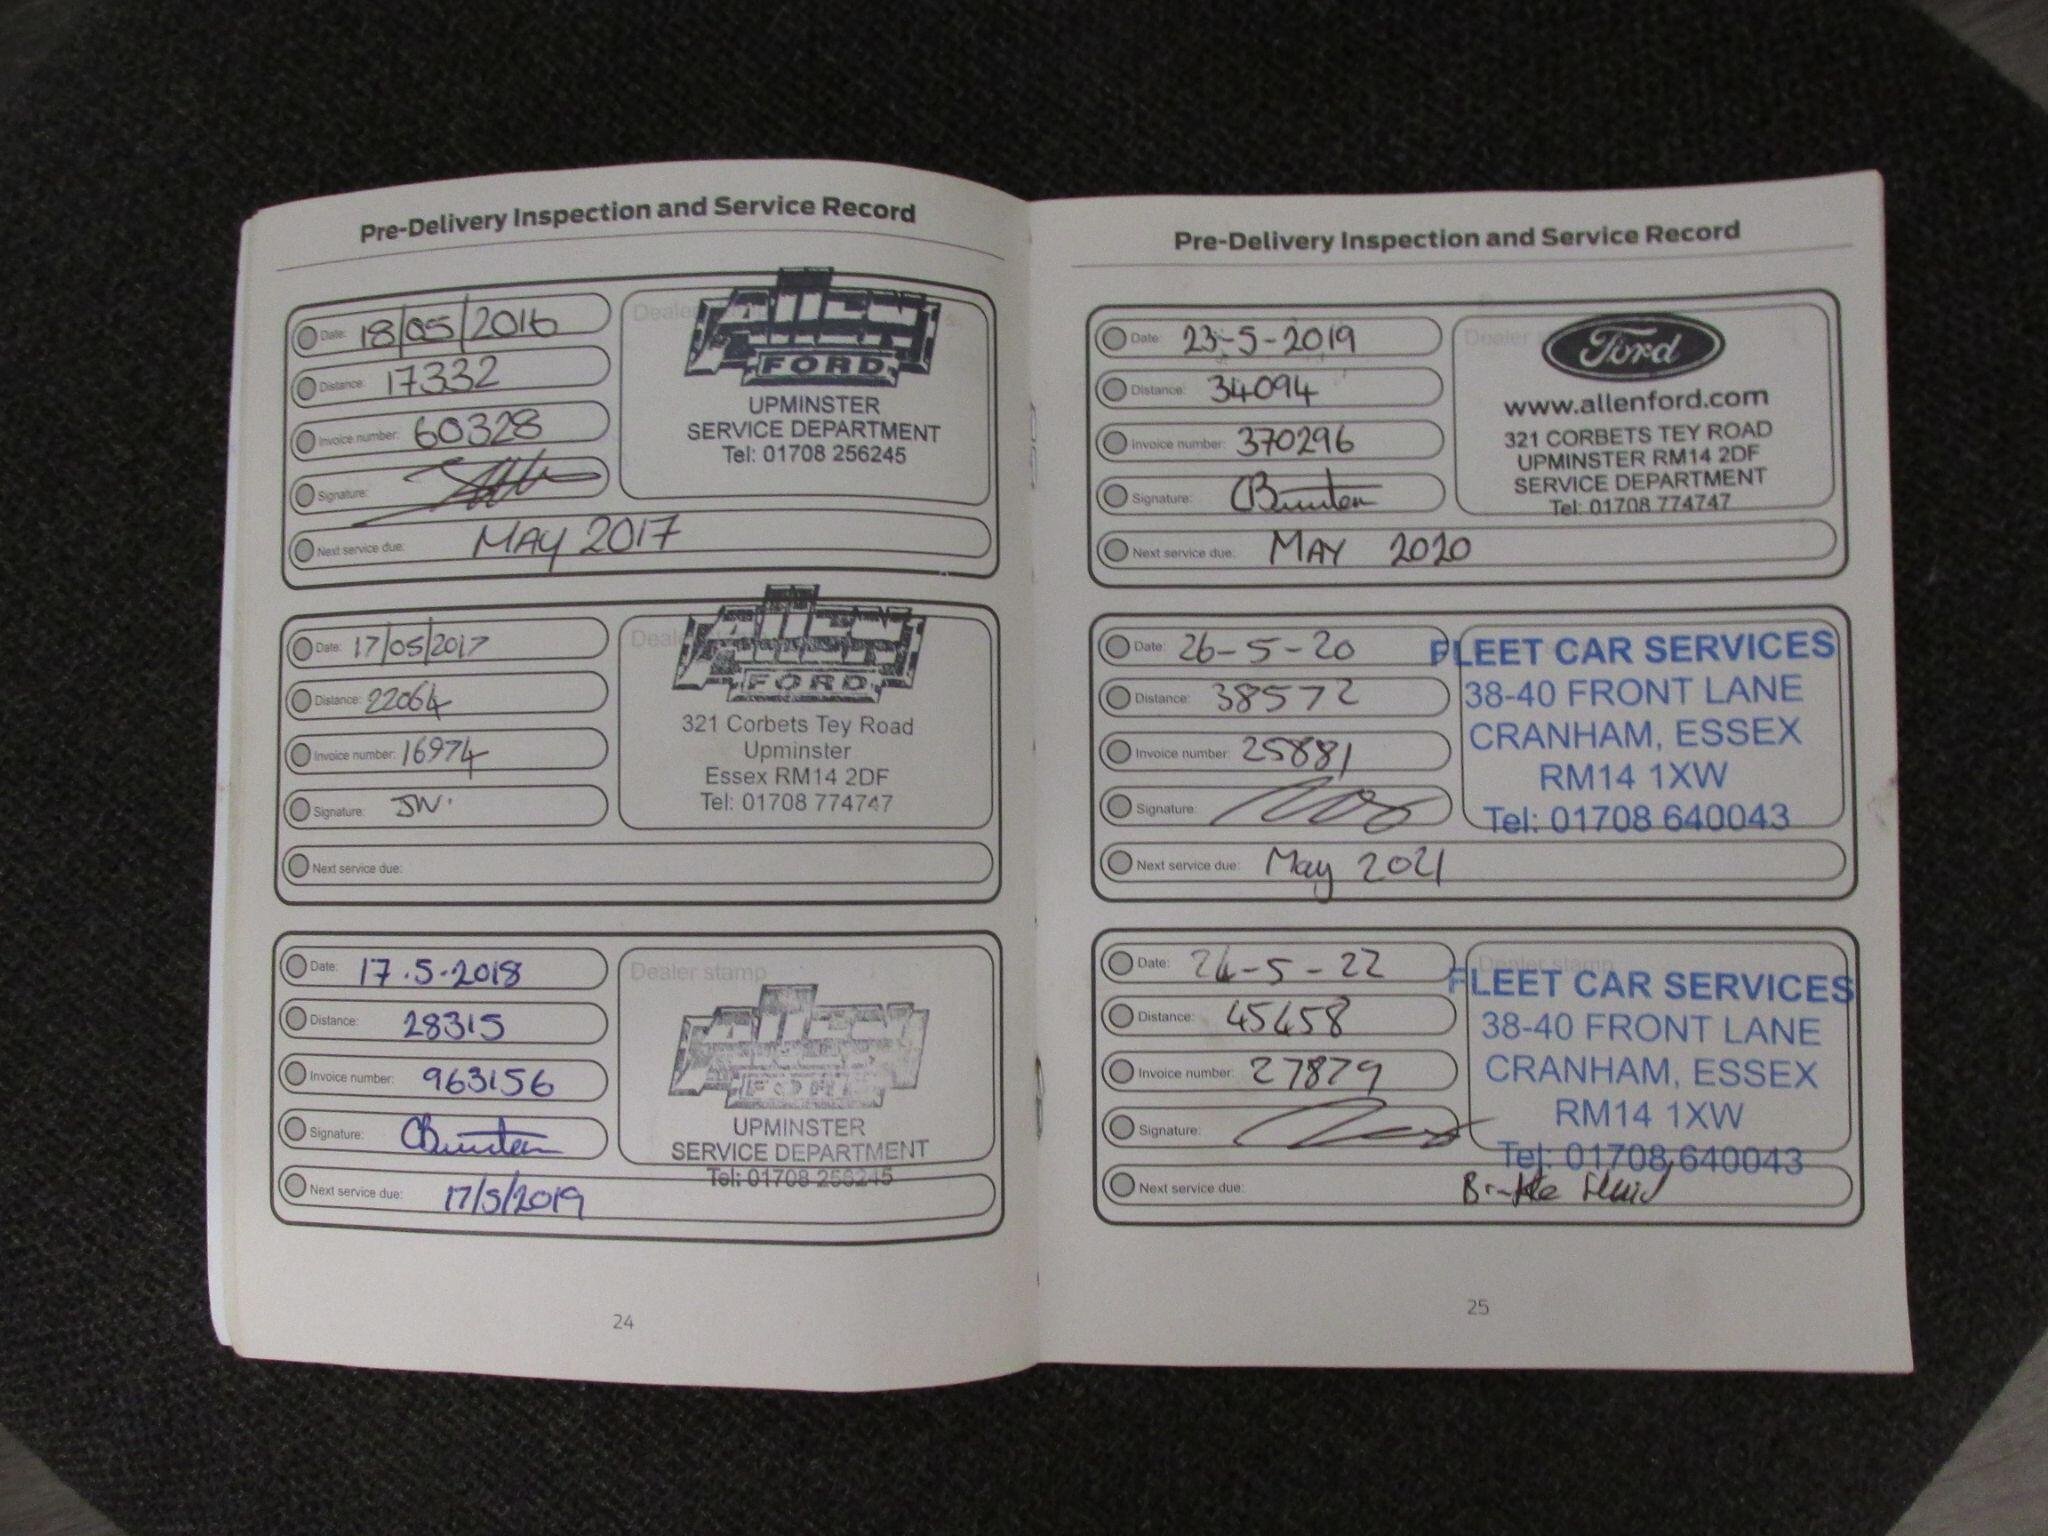 Pre-Delivery Inspection and Service Record
Date: 18/05/2016
Distance: 17332
Invoice number: 60328
Signature:
Next service due: MAY 2017
Dealer stamp
Allen
FORD
UPMINSTER
SERVICE DEPARTMENT
Tel: 01708 256245
Date: 17/05/2017
Distance: 22064
Invoice number: 16974
Signature: JW.
Next service due:
Allen
FORD
321 Corbets Tey Road
Upminster
Essex RM14 2DF
Tel: 01708 774747
Date: 17.5.2018
Distance: 28315
Invoice number: 963156
Signature:
Next service due: 17/5/2019
Dealer stamp
Allen
FORD
UPMINSTER
SERVICE DEPARTMENT
Tel: 01708 256245
24
Pre-Delivery Inspection and Service Record
Date: 23-5-2019
Distance: 34094
Invoice number: 370296
Signature:
Next service due: MAY 2020
Ford
www.allenford.com
321 CORBETS TEY ROAD
UPMINSTER RM14 2DF
SERVICE DEPARTMENT
Tel: 01708 774747
Date: 26-5-20
Distance: 38572
Invoice number: 25881
Signature:
Next service due: May 2021
FLEET CAR SERVICES
38-40 FRONT LANE
CRANHAM, ESSEX
RM14 1XW
Tel: 01708 640043
Date: 24-5-22
Distance: 45458
Invoice number: 27879
Signature:
Next service due: Brake Fluid
Dealer stamp
FLEET CAR SERVICES
38-40 FRONT LANE
CRANHAM, ESSEX
RM14 1XW
Tel: 01708 640043
25